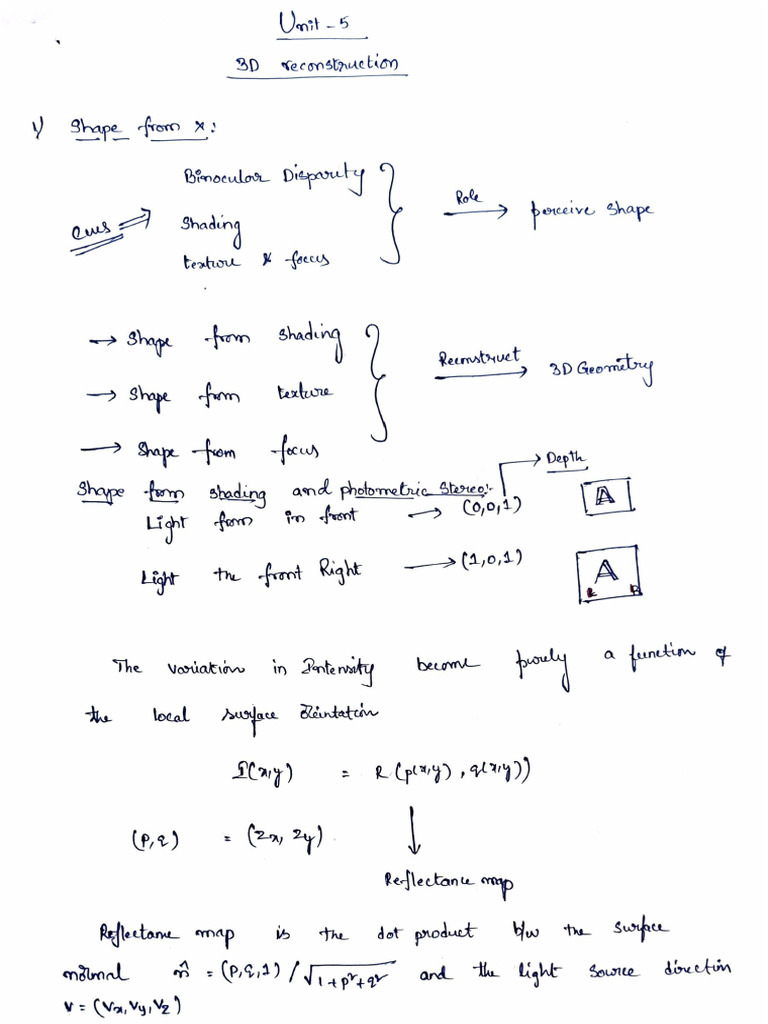 Unit-5
3D reconstruction
1) Shape from x:
Binocular Disparity
Cues ⟹ Shading
texture & focus
Role → perceive shape
→ Shape from shading
→ Shape from texture
→ Shape from focus
Reconstruct → 3D Geometry
Shape from shading and photometric Stereo:- → Depth
Light from in front → (0,0,1) A
Light the front Right → (1,0,1) A
L R
The variation in Intensity become purely a function of
the local surface Orientation
I(x,y) = R(p(x,y), q(x,y))
(p,q) = (zx, zy) ↓
Reflectance map
Reflectane map is the dot product b/w the surface
normal n̂ = (p,q,1)/√1+p²+q² and the light source direction
v = (vx,vy,vz)